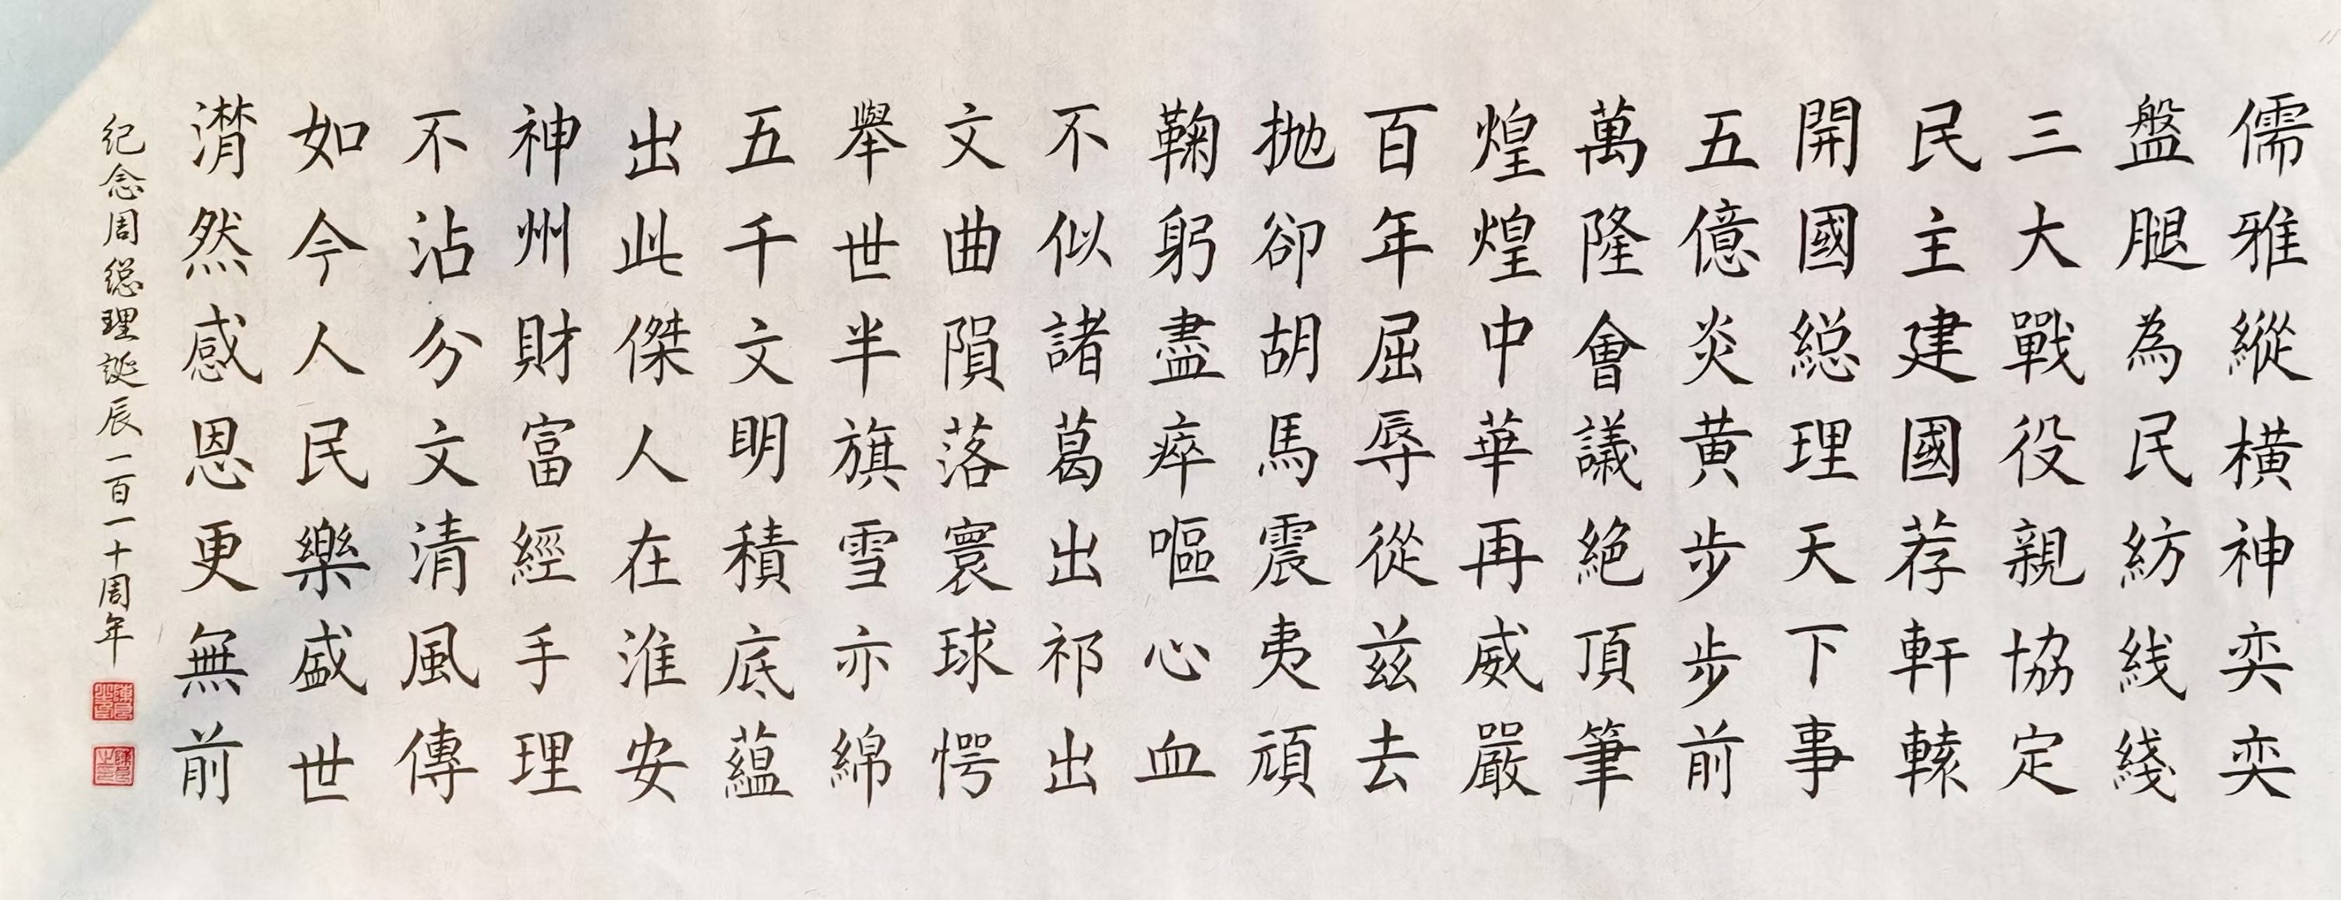 儒雅縱橫神奕奕
盤腿為民紡线綫
三大戰役親協定
民主建國荐軒轅
開國総理天下事
五億炎黃步步前
萬隆會議絕頂筆
煌煌中華再威嚴
百年屈辱從兹去
拋卻胡馬震夷頑
鞠躬盡瘁嘔心血
不似諸葛出祁出
文曲隕落寰球愕
舉世半旗雪亦綿
五千文明積底蘊
出此傑人在淮安
神州財富經手理
不沾分文清風傳
如今人民樂盛世
潸然感恩更無前
纪念周総理誕辰一百一十周年